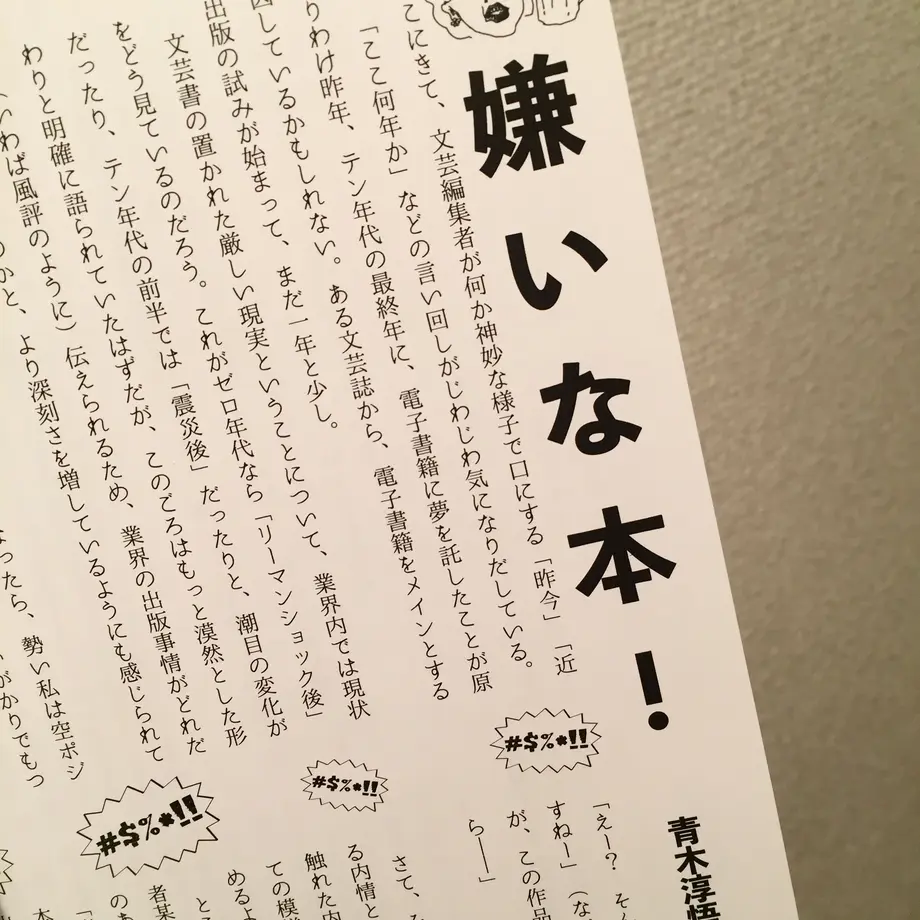 嫌いな本!
青木淳悟
こにきて、文芸編集者が何か神妙な様子で口にする「昨今」「近
「ここ何年か」などの言い回しがじわじわ気になりだしている。
りわけ昨年、テン年代の最終年に、電子書籍に夢を託したことが原
因しているかもしれない。ある文芸誌から、電子書籍をメインとする
出版の試みが始まって、まだ一年と少し。
文芸書の置かれた厳しい現実ということについて、業界内では現状
をどう見ているのだろう。これがゼロ年代なら「リーマンショック後」
だったり、テン年代の前半では「震災後」だったりと、潮目の変化が
わりと明確に語られていたはずだが、このごろはもっと漠然とした形
いわば風評のように)伝えられるため、業界の出版事情がどれだ
のかと、より深刻さを増しているようにも感じられて
なったら、勢い私は空ポジ
がかりでもっ
#$%*!!
#$%*!!
#$%*!!
「えー? そん
すねー」(な
が、この作品
ら――」
さて、
る内情と
触れた内
ての模様
めるよ
と
者某
のあ
本